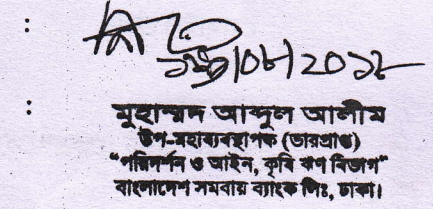 :
:
মুহাম্মদ আব্দুল আলীম
উপ-মহাব্যবস্থাপক (ভারপ্রাপ্ত)
"পরিদর্শন ও আইন, কৃষি ঋণ বিভাগ"
বাংলাদেশ সমবায় ব্যাংক লিঃ, ঢাকা।